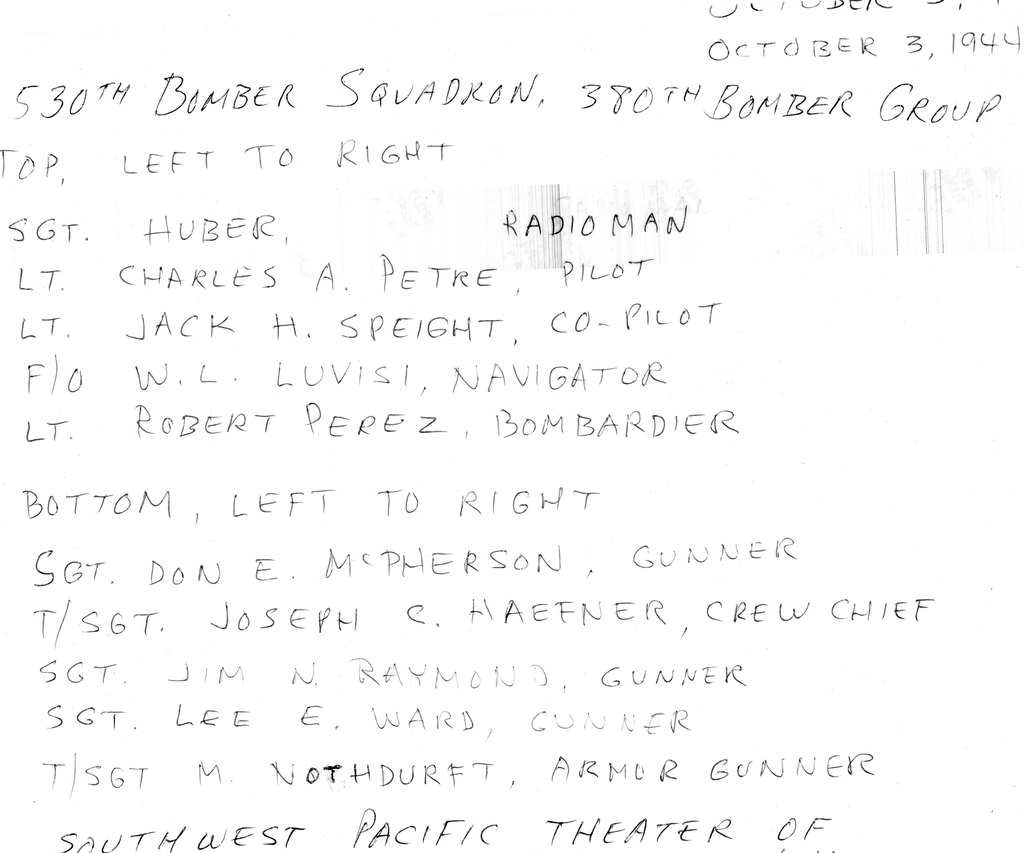 OCTOBER 3, 1944
530TH BOMBER SQUADRON, 380TH BOMBER GROUP
TOP, LEFT TO RIGHT
SGT. HUBER, RADIO MAN
LT. CHARLES A. PETRE, PILOT
LT. JACK H. SPEIGHT, CO-PILOT
F/O W.L. LUVISI, NAVIGATOR
LT. ROBERT PEREZ, BOMBARDIER
BOTTOM, LEFT TO RIGHT
SGT. DON E. McPHERSON, GUNNER
T/SGT. JOSEPH C. HAEFNER, CREW CHIEF
SGT. JIM N. RAYMOND, GUNNER
SGT. LEE E. WARD, GUNNER
T/SGT M. NOTHDURFT, ARMOR GUNNER
SOUTHWEST PACIFIC THEATER OF